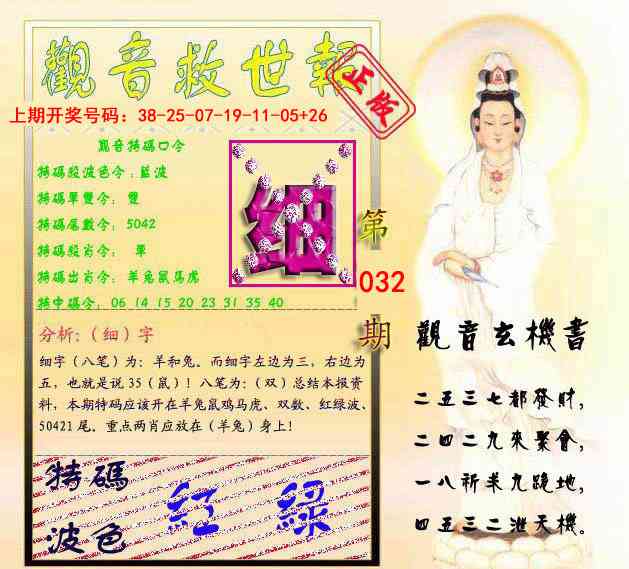 觀音救世報
正版
上期开奖号码：38-25-07-19-11-05+26
觀音特碼口令
特碼段波色令：藍波
特碼單雙令： 雙
特碼尾數令： 5042
特碼段肖令： 單
特碼出肖令：羊兔鼠马虎
特中碼令：06 14 15 20 23 31 35 40
细
第
032
期
分析:（细）字
细字（八笔）为: 羊和兔。而细字左边为三，右边为
五，也就是说 35（鼠）！八笔为:（双）总结本报资
料，本期特码应该开在羊兔鼠鸡马虎、双数、红绿波、
50421 尾。重点两肖应放在（羊兔）身上!
特碼
波色
紅 綠
觀音玄機書
二五三七都發財，
二四二九來聚會，
一八祈求九跪地，
四五三二泄天機。